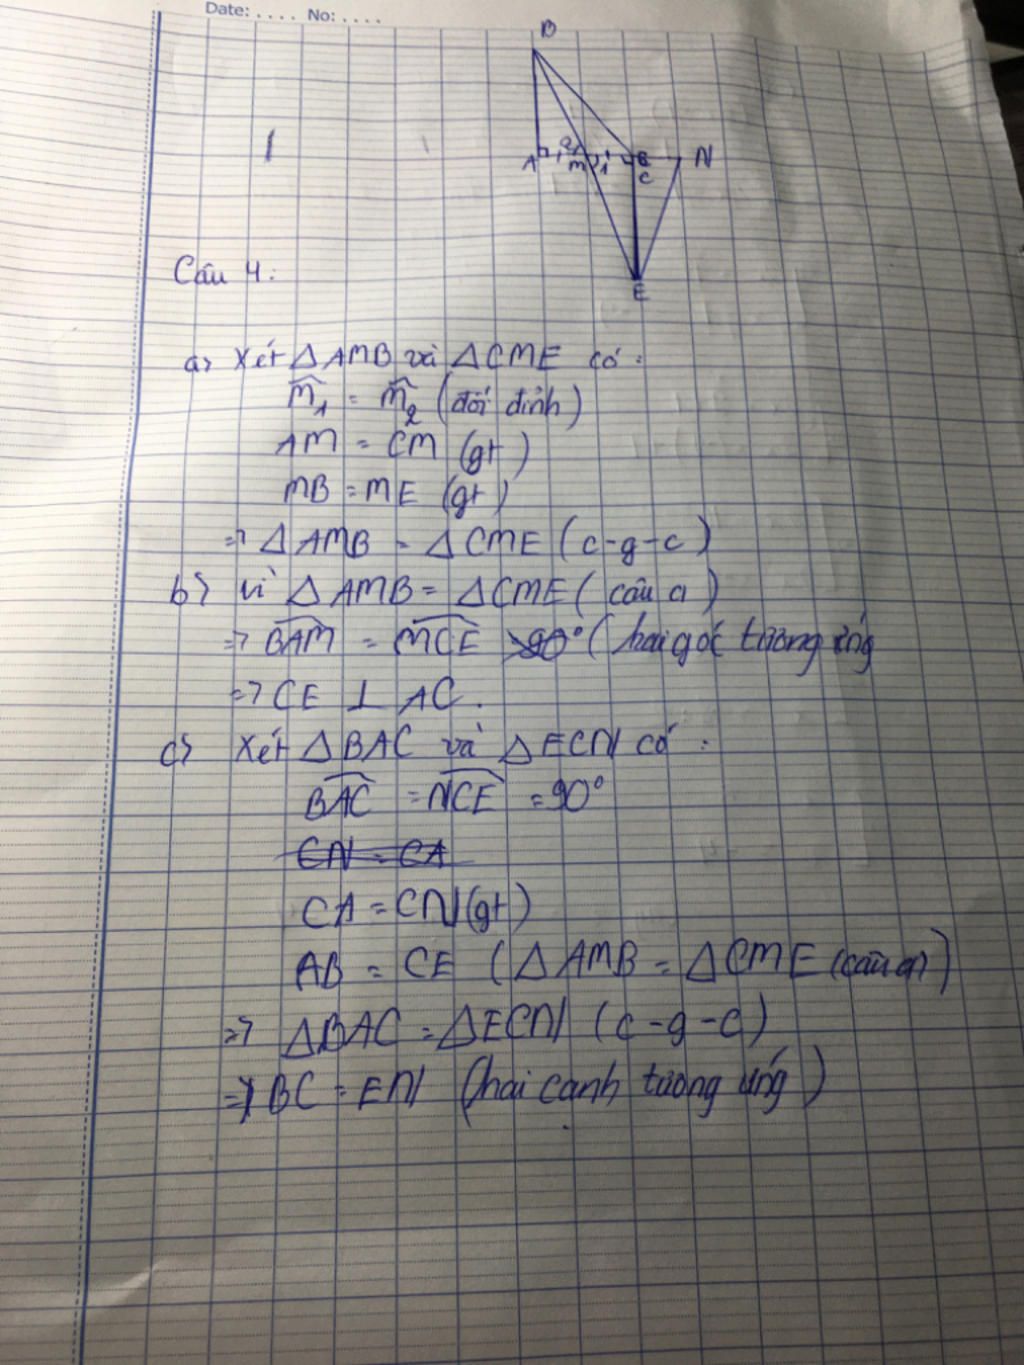 Date: .... No: ....
B
A 1 2 M 1 C N
E
Câu 4:
a> Xét △AMB và △CME có:
M̂₁ = M̂₂ (đối đỉnh)
AM = CM (gt)
MB = ME (gt)
=> △AMB = △CME (c-g-c)
b> Vì △AMB = △CME (câu a)
=> BAM = MCE (hai góc tương ứng
=> CE ⊥ AC.
c> Xét △BAC và △ECN có:
BAC = NCE = 90°
CN = CA
CA = CN (gt)
AB = CE (△AMB = △CME (câu a)
=> △BAC = △ECN (c-g-c)
=> BC = EN (hai cạnh tương ứng)